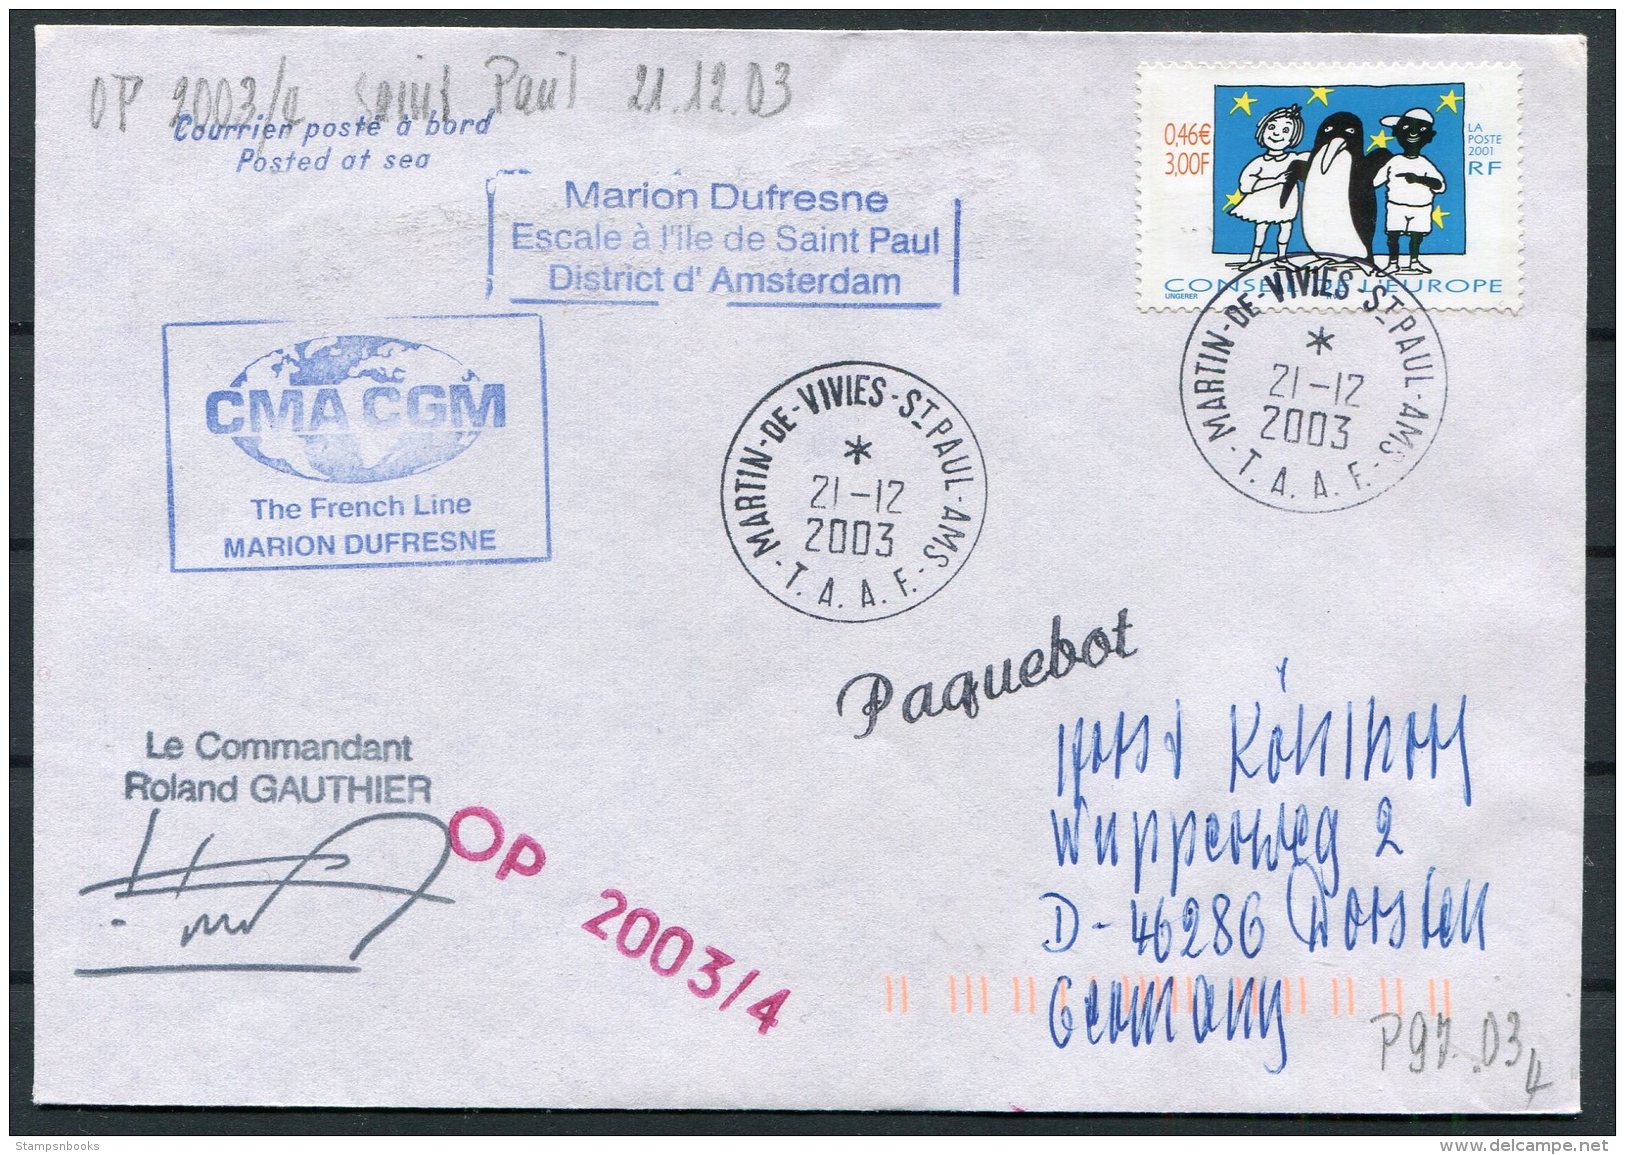 OP 2003/4 Saint Paul 21.12.03
Courrien posté à bord
Posted at sea
Marion Dufresne
Escale à l'île de Saint Paul
District d' Amsterdam
0.46€
3,00F
LA
POSTE
2001
RF
CONSEIL DE L'EUROPE
UNGERER
MARTIN-DE-VIVIES-ST PAUL-AMS-T.A.A.F.-
21-12
2003
CMA CGM
The French Line
MARION DUFRESNE
MARTIN-DE-VIVIES-ST PAUL-AMS-T.A.A.F.-
21-12
2003
Paquebot
Le Commandant
Roland GAUTHIER
OP 2003/4
Horst Köhlhoff
Wupperweg 2
D-46286 Dorsten
Germany
P97.03
4
Stampsnbooks
www.delcampe.net